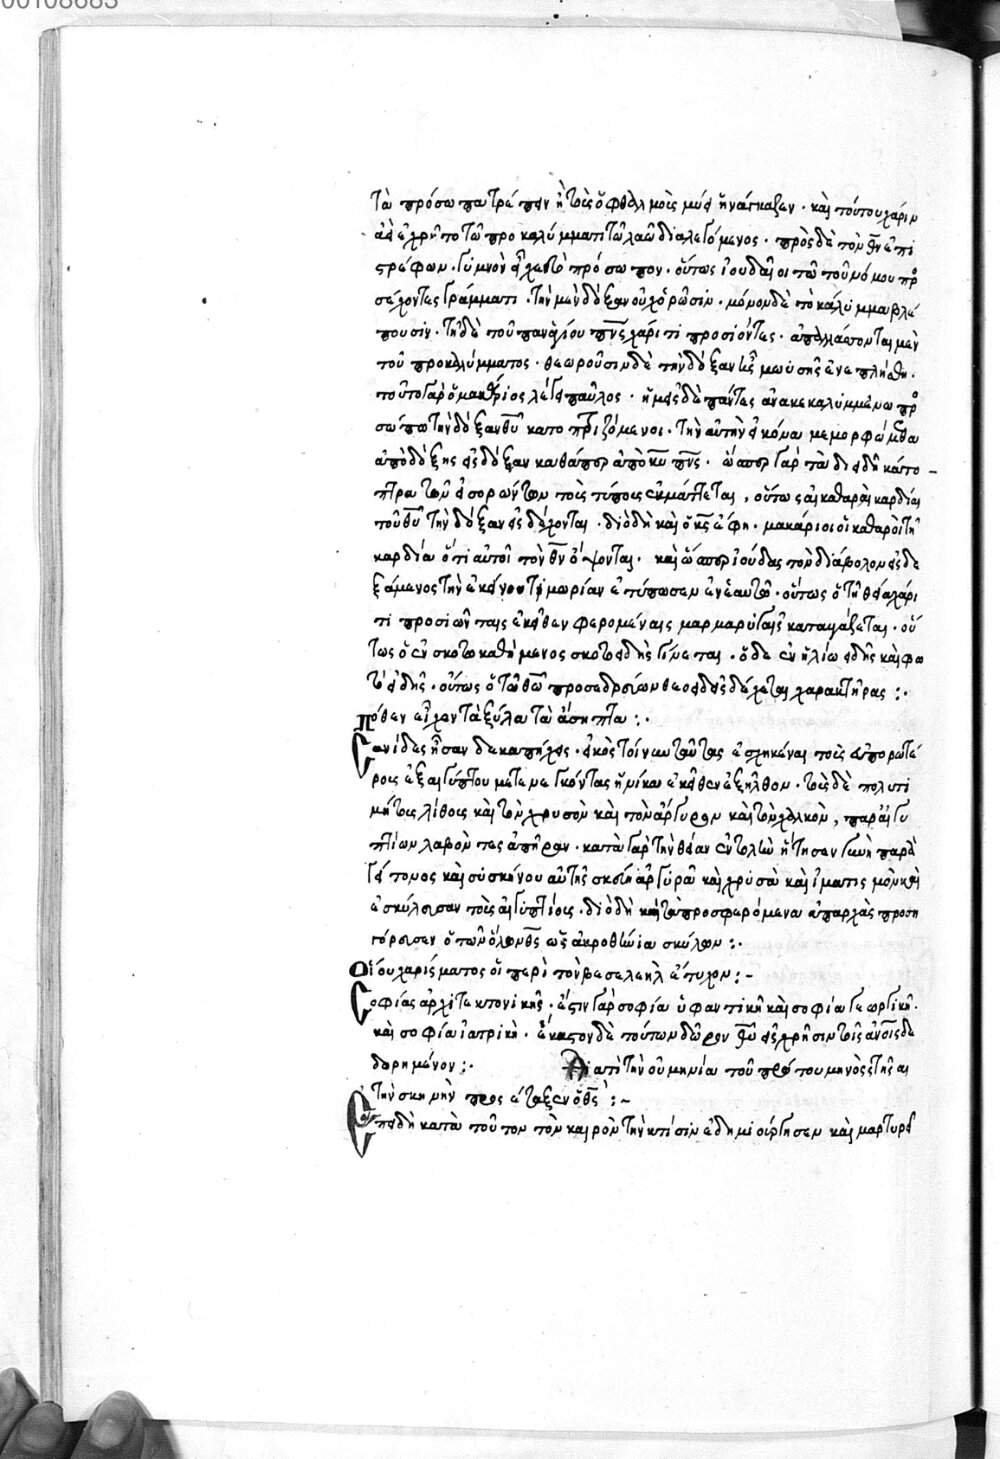 00108683
τὰ πρόσωπα τρέπειν ἢ τοῖς ὀφθαλμοῖς μύειν ἠνάγκαζεν · καὶ τούτου χάριν
ἀεὶ ἐχρῆτο τῶ προκαλύμματι τῶ λαῶ διαλεγόμενος · πρὸς δὲ τὸν θν ἐπι
στρέφων · γυμνὸν εἶχε τὸ πρόσωπον · οὕτως ἰουδαῖοι τῶ τοῦ νόμου προ
σέχοντες γράμματι · τὴν μὲν δόξαν οὐχ ὁρῶσιν · μόνον δὲ τὸ κάλυμμα βλέ
πουσιν · τῆ δὲ τοῦ παναγίου πνς χάριτι προσιόντες · ἀπαλλάττονται μὲν
τοῦ προκαλύμματος · θεωροῦσιν δὲ τὴν δόξαν ἧς μωϋσῆς ἐνεπλήσθη ·
τοῦτο γὰρ ὁ μακάριος λέγει παῦλος · ἡμεῖς δὲ πάντες ἀνακεκαλυμμένω προ
σώπω τὴν δόξαν θυ κατοπτριζόμενοι · τὴν αὐτὴν εἰκόνα μεμορφώμεθα
ἀπὸ δόξης εἰς δόξαν καθάπερ ἀπὸ κυ πνς · ὥσπερ γὰρ τὰ διειδῆ κάτο-
πτρα τῶν εἰσορώντων τοῖς τύποις ἐκμάττεται, οὕτως αἱ καθαραὶ καρδίαι
τοῦ θυ τὴν δόξαν εἰσδέχονται · διὸ δὴ καὶ ὁ κς ἔφη · μακάριοι οἱ καθαροὶ τῆ
καρδία ὅτι αὐτοὶ τὸν θν ὄψονται · καὶ ὥσπερ ἰούδας τὸν διάβολον εἰσδε
ξάμενος τὴν ἐκείνου τιμωρίαν ἐτύπωσεν ἐν ἑαυτῶ · οὕτως ὁ τῆ θεία χάρι
τι προσιὼν ταῖς ἐκεῖθεν φερομέναις μαρμαρυγαῖς καταυγάζεται · οὕ
τως ὁ ἐν σκότω καθήμενος σκοτοειδὴς γίνεται · ὁ δὲ ἐν ἡλίω ειδὴς καὶ φω
τοειδής · οὕτως ὁ τῶ θῶ προσεδρεύων θεοειδεῖς δέχεται χαρακτῆρας :·
Πόθεν εἶχον τὰ ξύλα τὰ ἄσηπτα :·
Σανίδες ἦσαν δεκαπήχεις · εἰκὸς τοίνυν ταύτας ἐσχηκέναι τοὺς εὐπορωτέ
ρους ἐξ αἰγύπτου μετενεγκόντας ἡνίκα ἐκεῖθεν ἐξῆλθον · τοὺς δὲ πολυτί
μήτους λίθους καὶ τὸν χρυσὸν καὶ τὸν ἄργυρον καὶ τὸν χαλκὸν, παρ' αἰγυ
πτίων λαβόντες ἀπῆραν · κατὰ γὰρ τὴν θείαν ἐντολὴν ἤτησεν γυνὴ παρὰ
γείτονος καὶ συσκήνου αὐτῆς σκεύη ἀργυρᾶ καὶ χρυσᾶ καὶ ἱματισμὸν καὶ
ἐσκύλευσαν τοὺς αἰγυπτίους · διὸ δὴ καὶ τὰ προσφερόμενα ἀπαρχὰς προση
γόρευσεν ὁ τῶν ὅλων θς ὡς ἀκροθίνια σκύλων :·
Οἵου χαρίσματος οἱ περὶ τὸν βεσελεὴλ ἔτυχον :-
Σοφίας ἀρχιτεκτονικῆς · ἔστιν γὰρ σοφία ὑφαντικὴ καὶ σοφία γεωργικὴ ·
καὶ σοφία ἰατρικὴ · ἕκαστον δὲ τούτων δῶρον θυ εἰς χρῆσιν τοῖς ἀνοις δε
δωρημένον :· Διατί τὴν νουμηνία τοῦ πρώτου μηνὸς στῆσαι
τὴν σκηνὴν προσέταξεν ὁ θς :-
Ἐπειδὴ κατὰ τοῦτον τὸν καιρὸν τὴν κτίσιν ἐδημιούργησεν καὶ μαρτυρεῖ